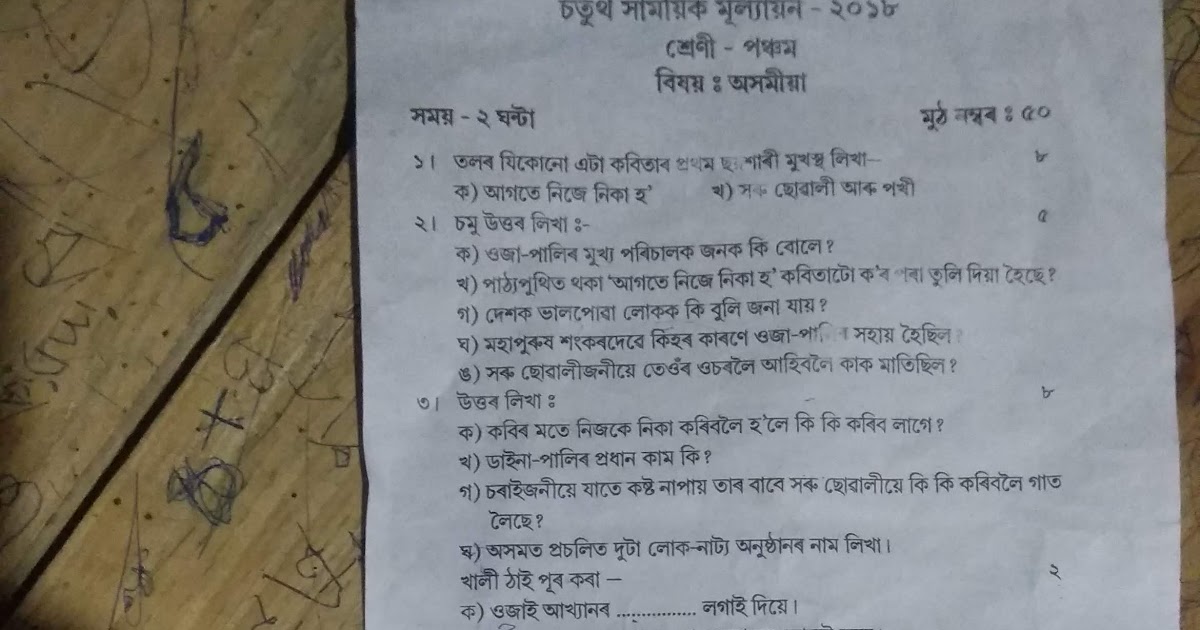 চতুৰ্থ সাময়িক মূল্যায়ন - ২০১৮
শ্ৰেণী - পঞ্চম
বিষয় : অসমীয়া
সময় - ২ ঘন্টা মুঠ নম্বৰ : ৫০
১। তলৰ যিকোনো এটা কবিতাৰ প্ৰথম ছঃশাৰী মুখস্থ লিখা— ৮
ক) আগতে নিজে নিকা হ' খ) সৰু ছোৱালী আৰু পখী
২। চমু উত্তৰ লিখা :- ৫
ক) ওজা-পালিৰ মুখ্য পৰিচালক জনক কি বোলে ?
খ) পাঠ্যপুথিত থকা 'আগতে নিজে নিকা হ' কবিতাটো ক'ৰ পৰা তুলি দিয়া হৈছে ?
গ) দেশক ভালপোৱা লোকক কি বুলি জনা যায় ?
ঘ) মহাপুৰুষ শংকৰদেৱে কিহৰ কাৰণে ওজা-পালিৰ সহায় লৈছিল ?
ঙ) সৰু ছোৱালীজনীয়ে তেওঁৰ ওচৰলৈ আহিবলৈ কাক মাতিছিল ?
৩। উত্তৰ লিখা : ৮
ক) কবিৰ মতে নিজকে নিকা কৰিবলৈ হ'লে কি কি কৰিব লাগে ?
খ) ডাইনা-পালিৰ প্ৰধান কাম কি ?
গ) চৰাইজনীয়ে যাতে কষ্ট নাপায় তাৰ বাবে সৰু ছোৱালীয়ে কি কি কৰিবলৈ গাত
লৈছে ?
ঘ) অসমত প্ৰচলিত দুটা লোক-নাট্য অনুষ্ঠানৰ নাম লিখা।
খালী ঠাই পূৰ কৰা — ২
ক) ওজাই আখ্যানৰ ................ লগাই দিয়ে।